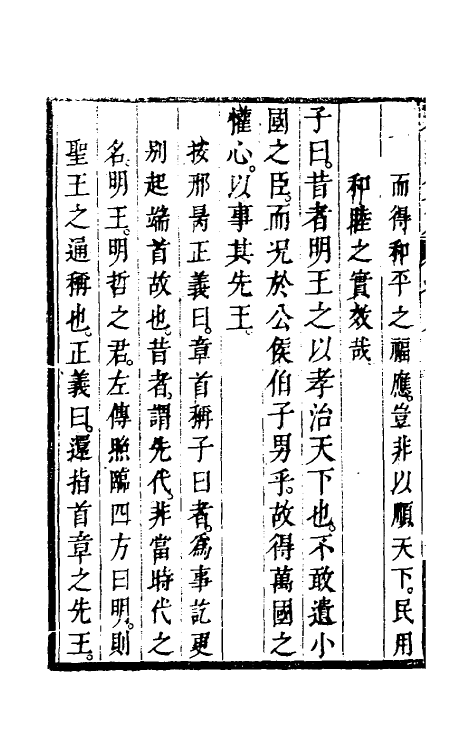 而得和平之福應。豈非以順天下。民用
和睦之實效哉
子曰。昔者明王之以孝治天下也。不敢遺小
國之臣。而况於公侯伯子男乎。故得萬國之
懽心。以事其先王
按邢昺正義曰。章首稱子曰者。為事訖更
别起端首故也。昔者。謂先代。非當時代之
名。明王。明哲之君。左傳照臨四方曰明。則
聖王之通稱也。正義曰。還指首章之先王。